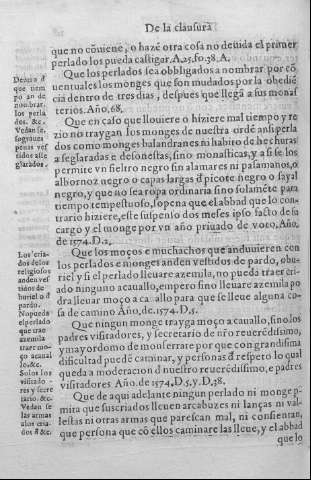 De la clausura
que no cõviene, o hazẽ otra cosa no devida el primer
perlado los pueda castigar. A.25.fo.38.A.
Que los perlados sea obbligados a nombrar por cõ
uentuales los monges que son mudados por la obediẽ
cia dentro de tres dias, despues que llegã a sus monas
terios. Año, 68.
Que en caso que llouiere o hiziere mal tiempo y re
zio no traygan los monges de nuestra ordẽ ansi perla
dos como monges balandranes ni habito de hechuras
a seglaradas e desonestas, sino monasticas, y a si se les
permite vn fieltro negro sin alamares ni pasamanos, o
albornoz negro o capas largas d̃ picote negro o sayal
negro, y que no sea ropa ordinaria sino solamẽte para
tiempo tempestuoso, so pena que el abbad que lo con-
trario hiziere, este suspenso dos meses ipso facto de su
cargo y el monge por vn año priuado de voto, Año,
de 1574. D.2,
Que los moços e muchachos que anduuieren con
los perlados e monges anden vestidos de pardo, o bu-
riel y si el perlado lleuare azemila, no pueda traer cri-
ado ninguno acauallo, empero sino lleuare azemila po
dra lleuar moço a ca allo para que se llieue alguna co-
sa de camino Año, de. 1574. D.5.
Que ningun monge trayga moço a cauallo, sino los
padres visitadores, y secretario de nr̃o reuerẽdissimo,
y mayordomo de monserrate por que con grandissima
dificultad puedẽ caminar, y personas d̃ respeto lo qual
queda a moderacion d̃ nuestro reuerẽdissimo, e padres
visitadores Año. de 1574. D.5. y D.38.
Que de aqui adelante ningun perlado ni monge p-
mita que sus criados lleuen arcabuzes ni lanças ni va-
llestas ni otras armas que parescan mal, ni consientan,
que persona que cõ ellos caminare las lleue, y el abbad
que lo
que nem
go an de
nombrar,
los perla
dos. &c.
Vedan se,
sograues
penas ves
tidos asse
glarados.
Los cria-
dos de los
religiosos
anden ves
tidos de
buriel o d̃
pardo.
No pueda
el perlado
que trae
azemila
traer mo-
ço acaual
lo, &c.
Solos los
visitado-
res y secre
tario. &c.
Vedan se
las armas
alos cria-
dos d̃ &c.